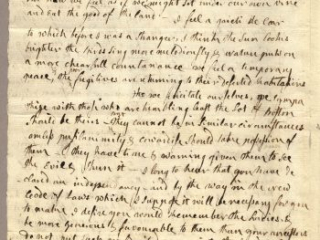 but now we feel as if we might sit under our own vine
and eat the good of the land — I feel a gaieti de Coar
to which before I was a stranger. I think the Sun looks
brighter the Birds sing more melodiously & Nature puts on
a more chearfull countanance. we feel a temporary
peace, the poor fugitives are returning to their deserted habitations
tho we felicitate ourselves, we sympa
thize with those who are trembling least the Lot of Boston
should be theirs — they cannot be in similar circumstances
unless pusilanimity & cowardise should take possession of
them — they have time & warning given them to see
the Evil & shun it — I long to hear that you have de
clared an independancy — and by the way in the new
Code of Laws which I suppose it will be necessary for you
to make I desire you would Remember the Ladies, &
be more generous & favourable to them than your ancestors